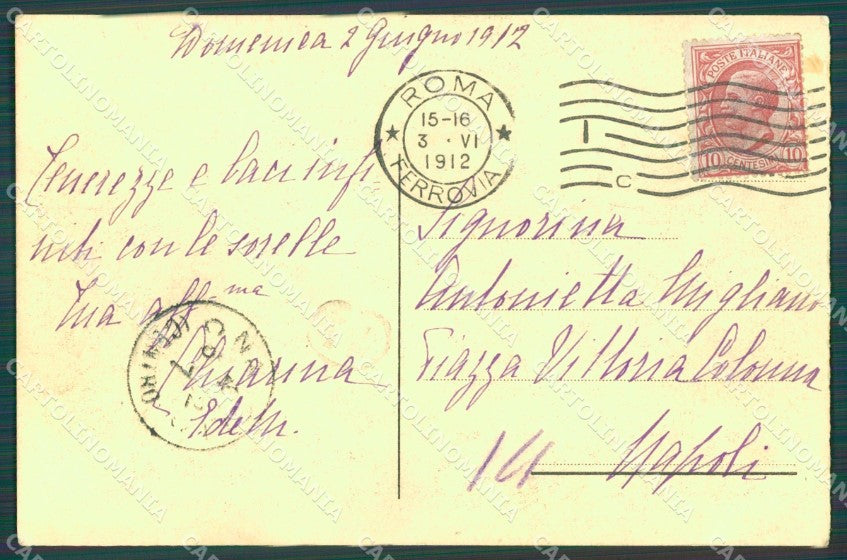 Domenica 2 Giugno 1912
ROMA
15-16
3 · VI
1912
FERROVIA
C
POSTE ITALIANE
10 CENTESIMI 10
Tenerezze e baci infi
niti con le sorelle
Tua aff.ma
Signorina
Antonietta Migliano
Piazza Vittoria Colonna
14
Napoli
CARTOLINOMANIA